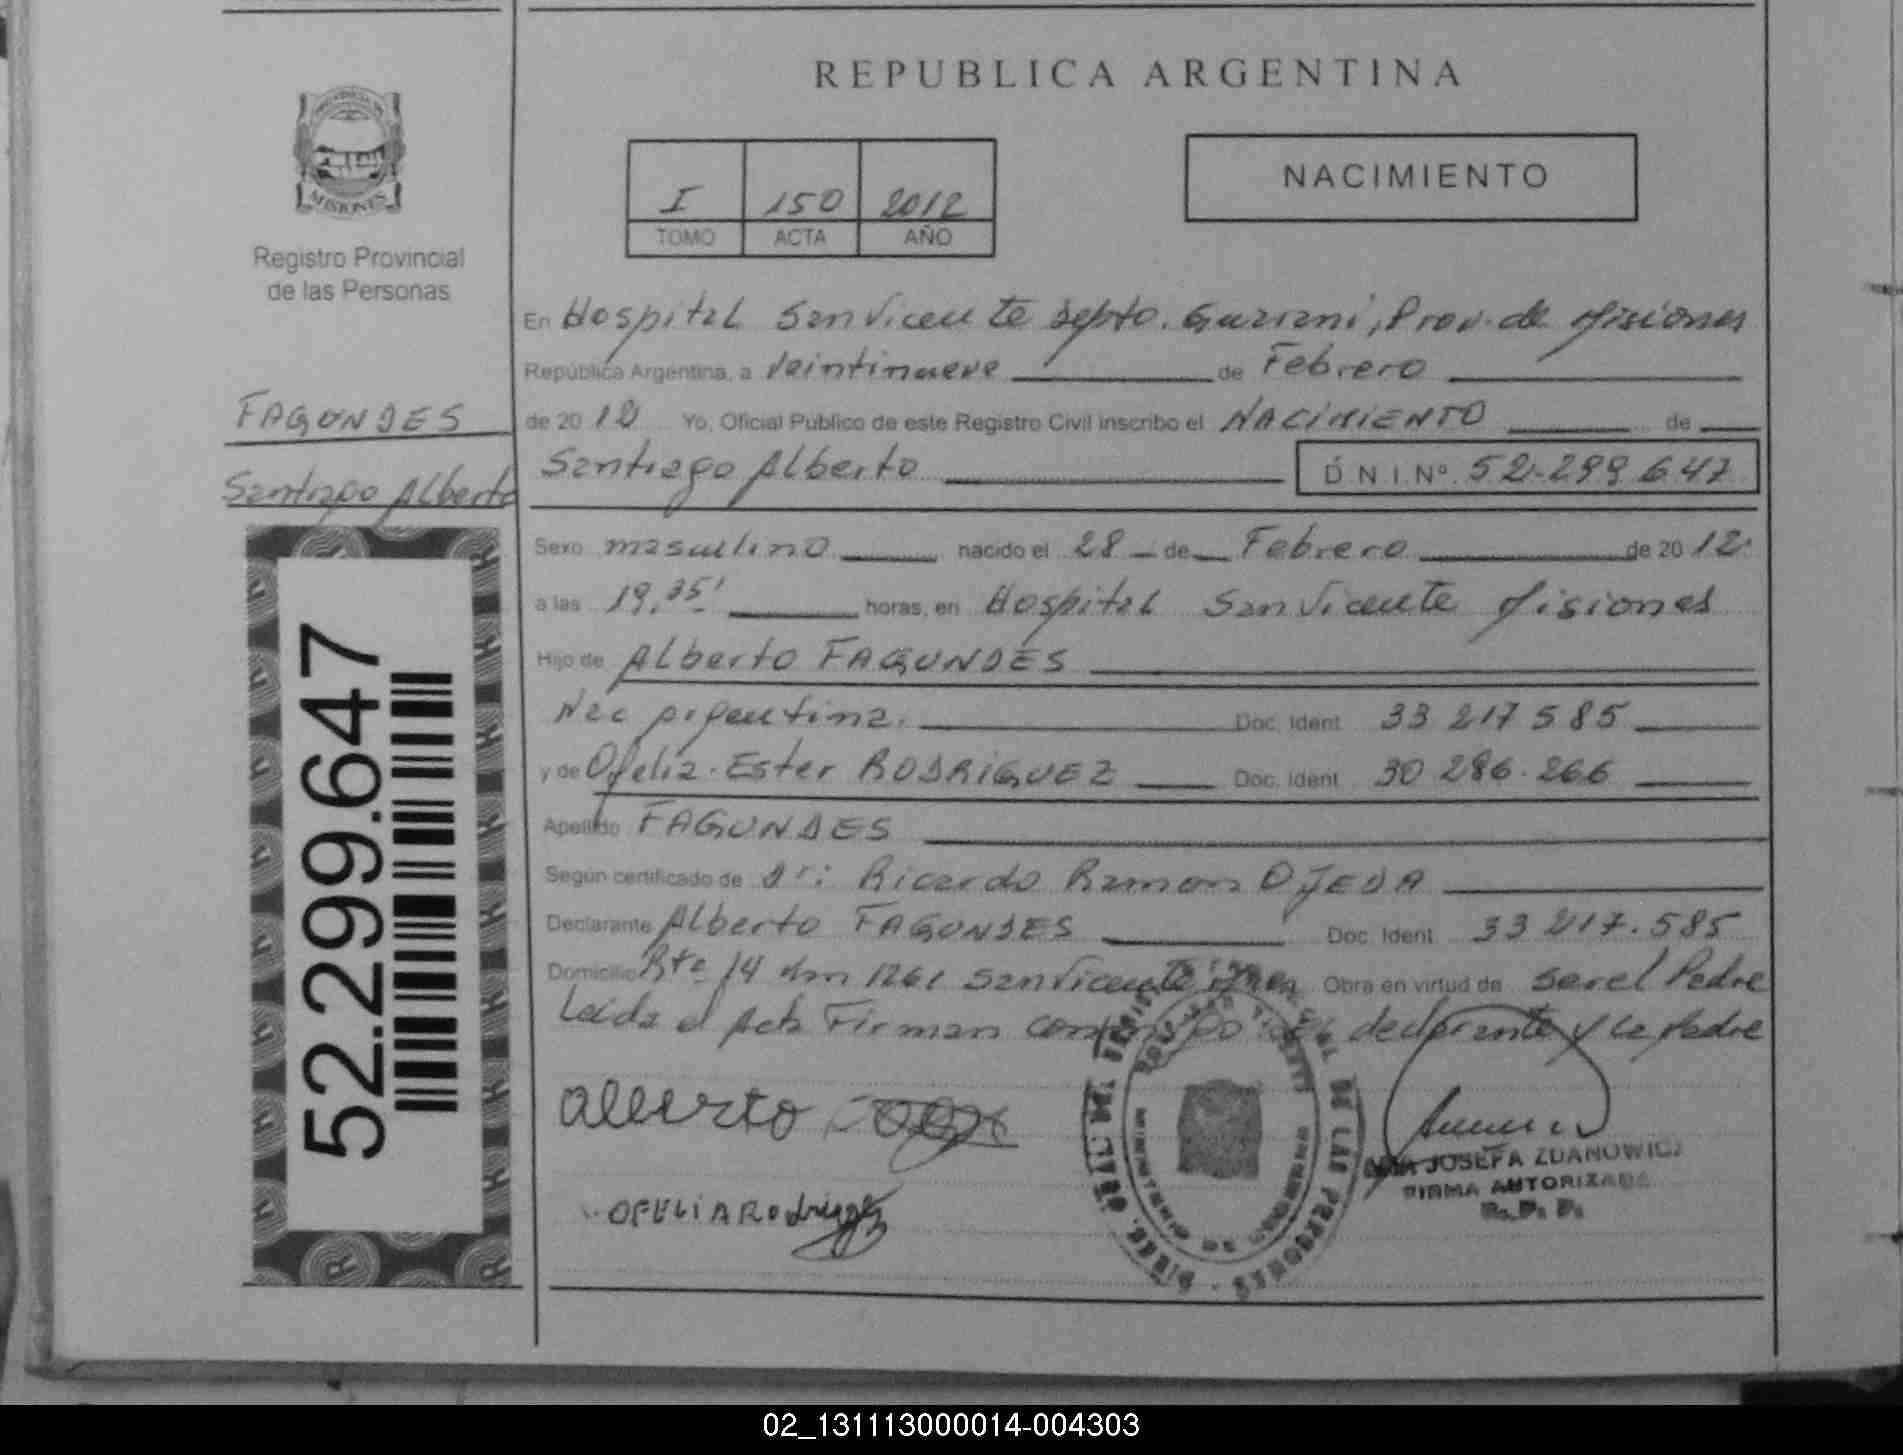 REPUBLICA ARGENTINA
MISIONES
Registro Provincial
de las Personas
I 150 2012
TOMO ACTA AÑO
NACIMIENTO
FAGUNDES
Santiago Alberto
52.299.647
En Hospital San Vicente Depto. Guarani, Prov. de Misiones
República Argentina, a veintinueve de Febrero
de 2012 Yo, Oficial Público de este Registro Civil inscribo el NACIMIENTO de
Santiago Alberto D.N.I.Nº. 52.299.647
Sexo masculino nacido el 28 de Febrero de 2012
a las 19,35' horas, en Hospital San Vicente Misiones
Hijo de Alberto FAGUNDES
Nac Argentina. Doc. Ident. 33 217 585
y de Ofelia Ester RODRIGUEZ Doc. Ident. 30 286.266
Apellido FAGUNDES
Según certificado de Dr: Ricardo Ramon OJEDA
Declarante Alberto FAGUNDES Doc. Ident. 33 217.585
Domicilio Rta 14 Km 1261 San Vicente Obra en virtud de ser el Padre
Leida el Acta Firman conmigo el declarante y la Madre
Alberto
OFELIA Rodriguez
DE LAS PERSONAS
JOSEFA ZDANOWICZ
FIRMA AUTORIZADA
R. P. P.
02_131113000014-004303